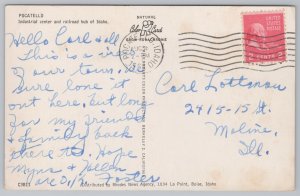 POCATELLO
Industrial center and railroad hub of Idaho.
NATURAL
Color Card
FROM KODACHROME
IDAHO
2 CENTS 2
Hello Carl & all
This is a
of our town.
Sure love it
out here, but long
for my friends
& family back
there too. Hope
Myrna & Helen
are O.K. Foster
Carl Lottman
2415-15 St.
Moline,
Ill.
C9021
Distributed by Rhodes News Agency, 1034 La Point, Boise, Idaho